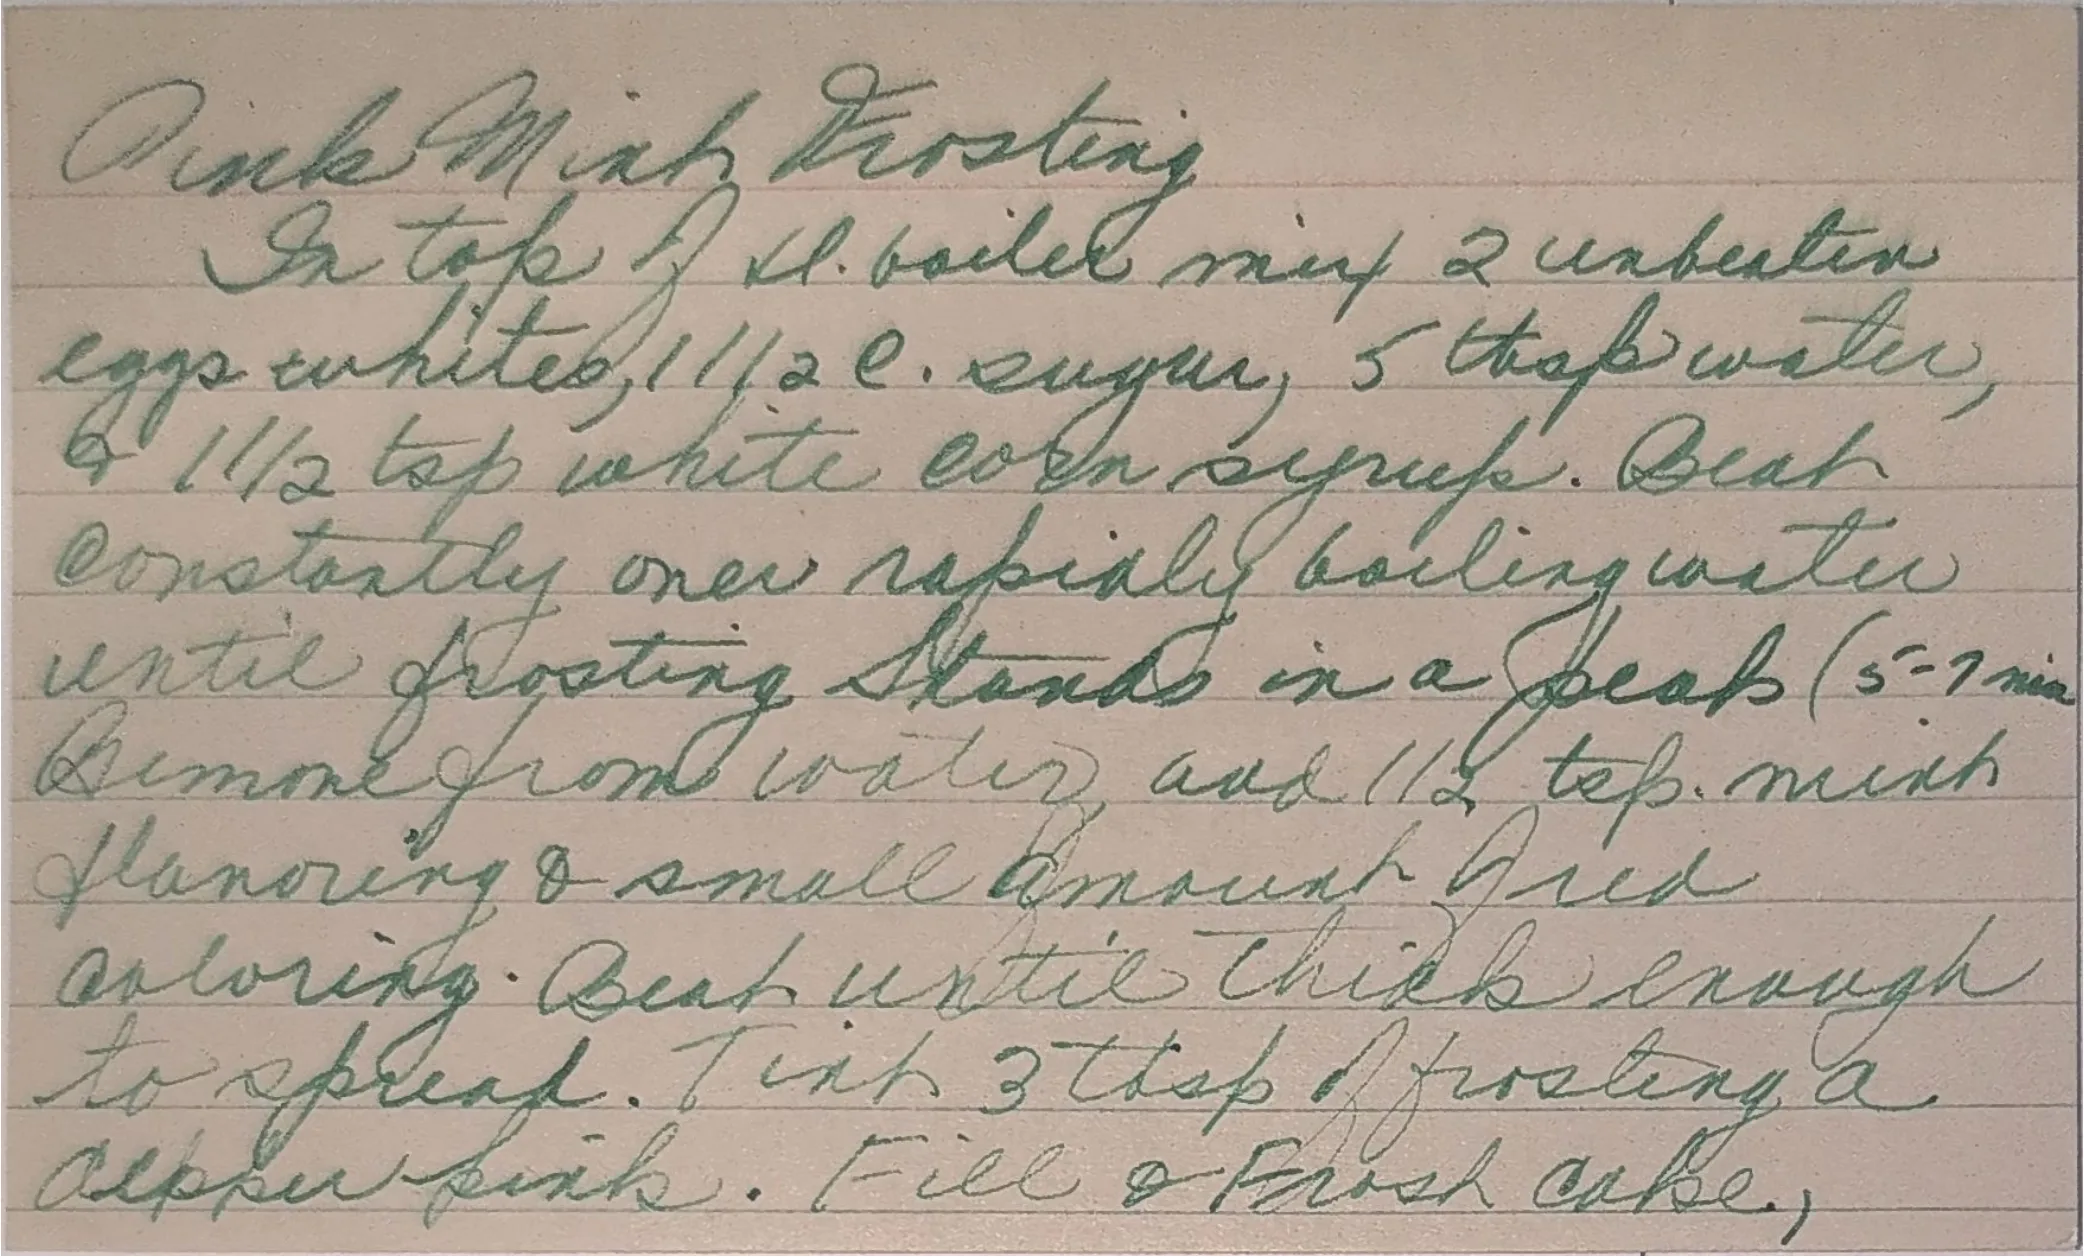 Pink Mint Frosting
In top of dl. boiler mix 2 unbeaten
eggs whites, 1 1/2 c. sugar, 5 tbsp water,
& 1 1/2 tsp white corn syrup. Beat
constantly over rapidly boiling water
until frosting stands in a peak (5-7 min
Remove from water, add 1/2 tsp. mint
flavoring & small amount of red
coloring. Beat until thick enough
to spread. Tint 3 tbsp of frosting a
depper pink. Fill & Frost cake.,